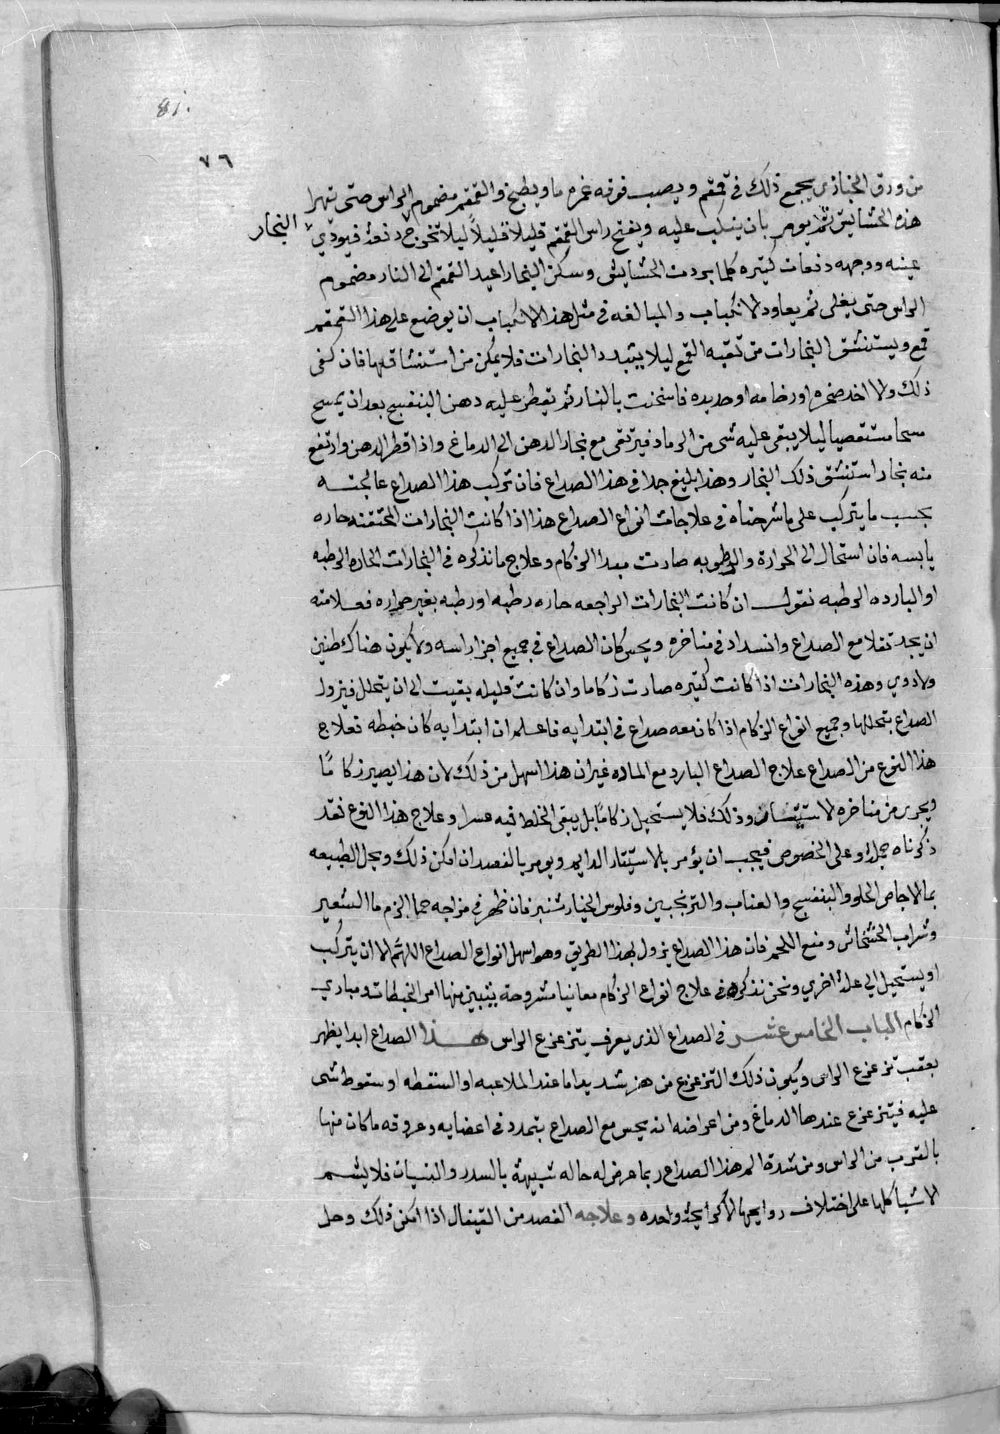 81.
٧٦
من ورق الخبازى يجمع ذلك فى قمقم ويصب فوقه غمره ما ويطبخ والقمقم مضموم الراس حتى تهرا
هذه الحشايش ثم يومر بان ينكب عليه ويفتح راس القمقم قليلا قليلاً ليلا تخرج دفعة فيوذي
البخار
عينيه ووجهه دفعات كثيره كلما بردت الحشايش وسكن البخار اعيد القمقم الى النار مضموم
الراس حتى يغلى ثم يعاود الانكباب والمبالغه فى مثل هذا الانكباب ان يوضع على هذا القمقم
قمع ويستنشق البخارات من ثقبه القمع ليلا يتبدد البخارات فلا يمكن من استنشاقها فان كفى
ذلك والا اخد صخره او رخامه او حديده فاسخنت بالنار ثم يقطر عليه دهن البنفسج بعد ان يمسح
مسحا مستقصيا ليلا يبقى عليه شى من الرماد فيرتقى مع بخار الدهن الى الدماغ واذا قطر الدهن وارتفع
منه بخار استنشق ذلك البخار وهذا بليغ جدا فى هذا الصداع فان تركب هذا الصداع عالجته
بحسب ما يتركب على ما شرحناه فى علاجات انواع الصداع هذا اذا كانت البخارات المحتقنه حاره
يابسه فان استحال الى الحرارة والرطوبه صارت مبدا الزكام وعلاجه ما نذكره فى البخارات الحاره الرطبه
او البارده الرطبه نقول ان كانت البخارات الراجعه حاره رطبه او رطبه بغير حراره فعلامته
ان يجد ثقلا مع الصداع وانسداد فى مناخره ويحس كان الصداع فى جميع اجزا راسه ولا يكون هناك طنين
ولا دوي وهذه البخارات اذا كانت كثيره صارت زكاما وان كانت قليله بقيت الى ان يتحلل فيزول
الصداع بتحللها وجميع انواع الزكام اذا كان معه صداع فى ابتدايه فاعلم ان ابتدايه كان خبطه فعلاج
هذا النوع من الصداع علاج الصداع البارد مع الماده غير ان هذا اسهل من ذلك لان هذا يصير زكامًا
ويجرى من مناخره وذلك فلا يستحيل زكامًا بل يبقى الخلط فيه عسرا وعلاج هذا النوع فقد
ذكرناه جملة وعلى الخصوص فيجب ان يؤمر بالاستتار الدايم ويومر بالفصد ان امكن ذلك ويحل الطبيعه
بما الاجاص الحلو والبنفسج والعناب والترنجبين وفلوس الخيار شنبر فان ظهر فى مزاجه حما الزم ما الشعير
وشراب الخشخاش ومنع اللحم فان هذا الصداع يزول بهذا الطريق وهو اسهل انواع الصداع اللهم الا ان يتركب
او يستحيل الى علة اخري ونحن نذكر فى علاج انواع الزكام معانيا مشروحة يتبين منها امر الخبطات ومبادي
الزكام الباب الخامس عشر فى الصداع الذى يعرف بتزعزع الراس هذا الصداع ابدا يظهر
بعقب تزعزع الراس ويكون ذلك التزعزع من هز شديد اما عند الملاعبه او السقطه او سقوط شى
عليه فيتزعزع عندها الدماغ ومن اعراضه انه يحس مع الصداع بتمدد فى اعضايه وعروقه ما كان منها
بالقرب من الراس ومن شدة الم هذا الصداع ربما عرض له حاله شبيهة بالسدر والنسيان فلا يشم
الاشيا كلها على اختلاف روايحها الا كرايحة واحده وعلاجه الفصد من القيفال اذا امكن ذلك وحل